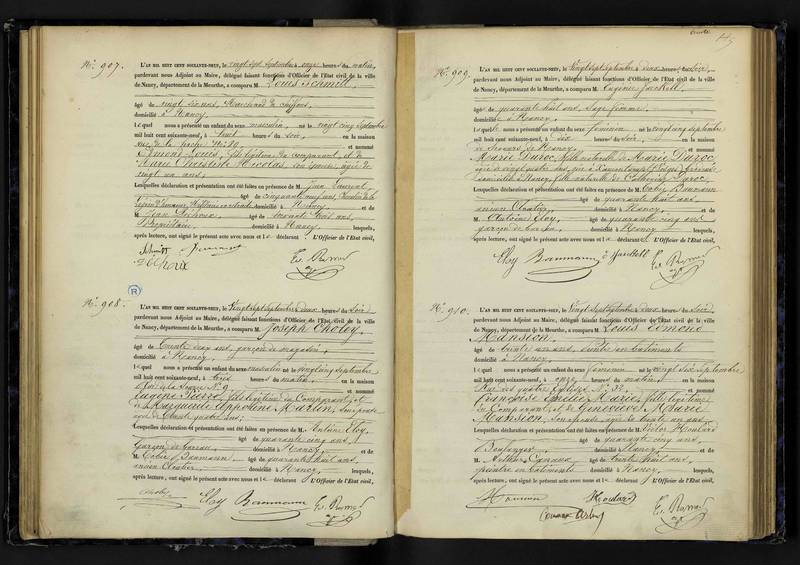 N.o 907.
L'AN MIL HUIT CENT SOIXANTE-NEUF, le vingt sept septembre à onze heures du matin,
pardevant nous Adjoint au Maire, délégué faisant fonctions d'Officier de l'Etat civil de la ville
de Nancy, département de la Meurthe, a comparu M. Louis Schmitt,
âgé de vingt six ans, Marchand de
domicilié à Nancy,
lequel nous a présenté un enfant du sexe masculin, né le vingt cinq septembre
mil huit cent soixante-neuf, à huit heures du soir, en la maison
rue de la N.o 20, et nommé
Edmond Louis, fils légitime du comparant et de
Marie Christine Nicolas, son épouse, âgée de
vingt un ans,
Lesquelles déclaration et présentation ont été faites en présence de M. Jean
âgé de cinquante neuf ans, Chevalier de la
Légion d'honneur, Militaire en retraite domicilié à Nancy, et de
M. Jean âgé de soixante trois ans,
Propriétaire, domicilié à Nancy, lesquels,
après lecture, ont signé le présent acte avec nous et le déclarant. L'Officier de l'Etat civil,
Schmitt
N.o 908.
L'AN MIL HUIT CENT SOIXANTE-NEUF, le Vingt sept septembre à deux heures du soir,
pardevant nous Adjoint au Maire, délégué faisant fonctions d'Officier de l'Etat civil de la ville
de Nancy, département de la Meurthe, a comparu M. Joseph Choley,
âgé de trente deux ans, garçon de magasin,
domicilié à Nancy,
lequel nous a présenté un enfant du sexe masculin, né le vingt cinq septembre
mil huit cent soixante-neuf, à trois heures du matin, en la maison
N.o 9, et nommé
Eugène Pierre, fils légitime du Comparant et
de Marguerite Appoline Martin, son épouse
âgée de trente quatre ans,
Lesquelles déclaration et présentation ont été faites en présence de M. Antoine Eloy,
âgé de quarante cinq ans,
garçon de bureau, domicilié à Nancy, et de
M. Tobie Baumann, âgé de quarante huit ans,
ancien Cloutier, domicilié à Nancy, lesquels,
après lecture, ont signé le présent acte avec nous et le déclarant. L'Officier de l'Etat civil,
Choley Eloy Baumann
N.o 909.
L'AN MIL HUIT CENT SOIXANTE-NEUF, le vingt sept septembre à deux heures du soir,
pardevant nous Adjoint au Maire, délégué faisant fonctions d'Officier de l'Etat civil de la ville
de Nancy, département de la Meurthe, a comparu M. Eugénie
âgée de quarante huit ans, Sage femme,
domiciliée à Nancy,
laquelle nous a présenté un enfant du sexe féminin, né le vingt cinq septembre
mil huit cent soixante-neuf, à dix heures du soir, en la maison
de secours de Nancy, et nommé
Marie Duroc, fille naturelle de Marie Duroc,
âgée de vingt quatre ans, née à
domiciliée à Nancy, fille naturelle de Catherine Duroc,
Lesquelles déclaration et présentation ont été faites en présence de M. Tobie Baumann
âgé de quarante huit ans,
ancien Cloutier, domicilié à Nancy, et de
M. Antoine Eloy, âgé de quarante cinq ans,
garçon de bureau, domicilié à Nancy, lesquels,
après lecture, ont signé le présent acte avec nous et la déclarante. L'Officier de l'Etat civil,
Eloy Baumann
N.o 910.
L'AN MIL HUIT CENT SOIXANTE-NEUF, le Vingt sept septembre à deux heures du soir,
pardevant nous Adjoint au Maire, délégué faisant fonctions d'Officier de l'Etat civil de la ville
de Nancy, département de la Meurthe, a comparu M. Louis Edmond
Mansion,
âgé de trente un ans, peintre en bâtiments
domicilié à Nancy,
lequel nous a présenté un enfant du sexe féminin, né le vingt six septembre
mil huit cent soixante-neuf, à onze heures du matin, en la maison
Rue des quatre Eglises N.o 32, et nommé
Françoise Marie, fille légitime
du Comparant et de Geneviève Marie
Mansion, son épouse âgée de trente un ans,
Lesquelles déclaration et présentation ont été faites en présence de M. Victor Houdard
âgé de quarante cinq ans,
Boulanger, domicilié à Nancy, et de
M. Arthur âgé de trente huit ans,
peintre en bâtiments domicilié à Nancy, lesquels,
après lecture, ont signé le présent acte avec nous et le déclarant. L'Officier de l'Etat civil,
Mansion Houdard